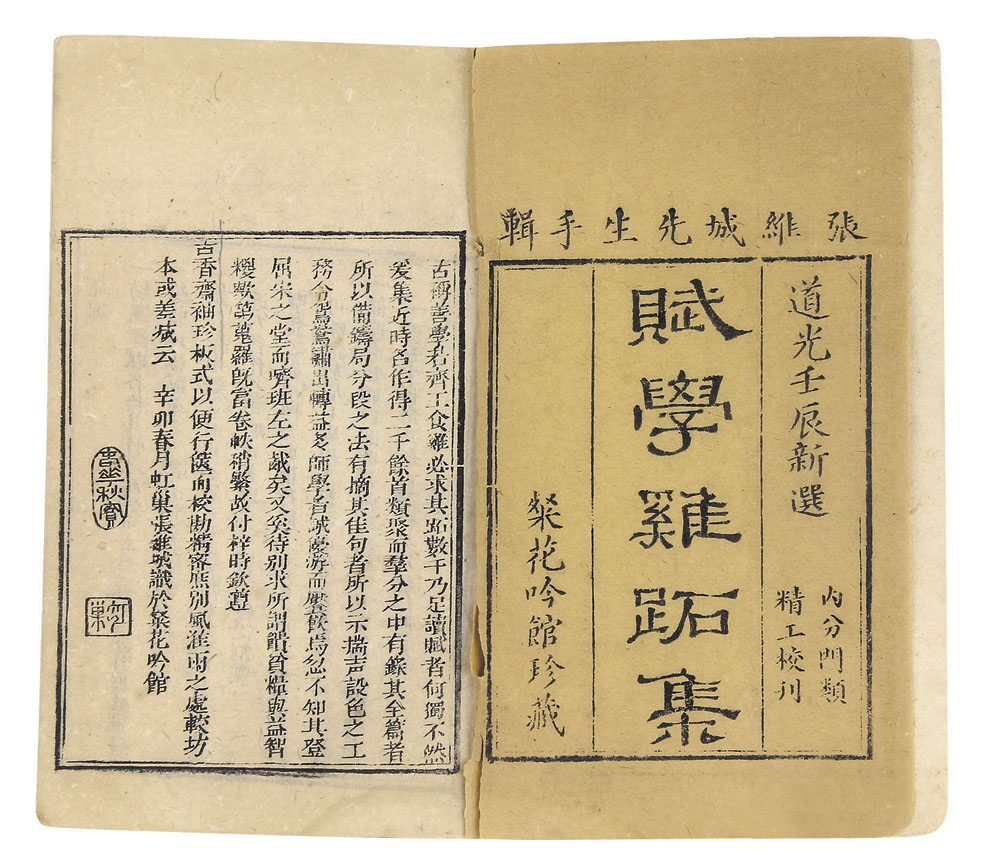 張維城先生手輯
道光壬辰新選
內分門類
精工校刊
賦學雞跖集
粲花吟館珍藏
古稱善學者齊王食雞必求其跖數千乃足讀賦者何獨不然
爰集近時名作得二千餘首類聚而羣分之中有錄其全篇者
所以備鑄局分段之法有摘其佳句者所以示摛声設色之工
務令鴛鴦繡出轉益多師學者誠優游而饜飫焉忽不知其登
屈宋之堂而嚌班左之胾矣又奚待別求所謂饋貧糧與益智
糉歟蒐羅既富卷帙稍繁故付梓時欽遵
古香齋袖珍板式以便行篋而校勘精審庶別風淮雨之處較坊
本或差减云 辛卯春月虹巢張維城識於粲花吟館